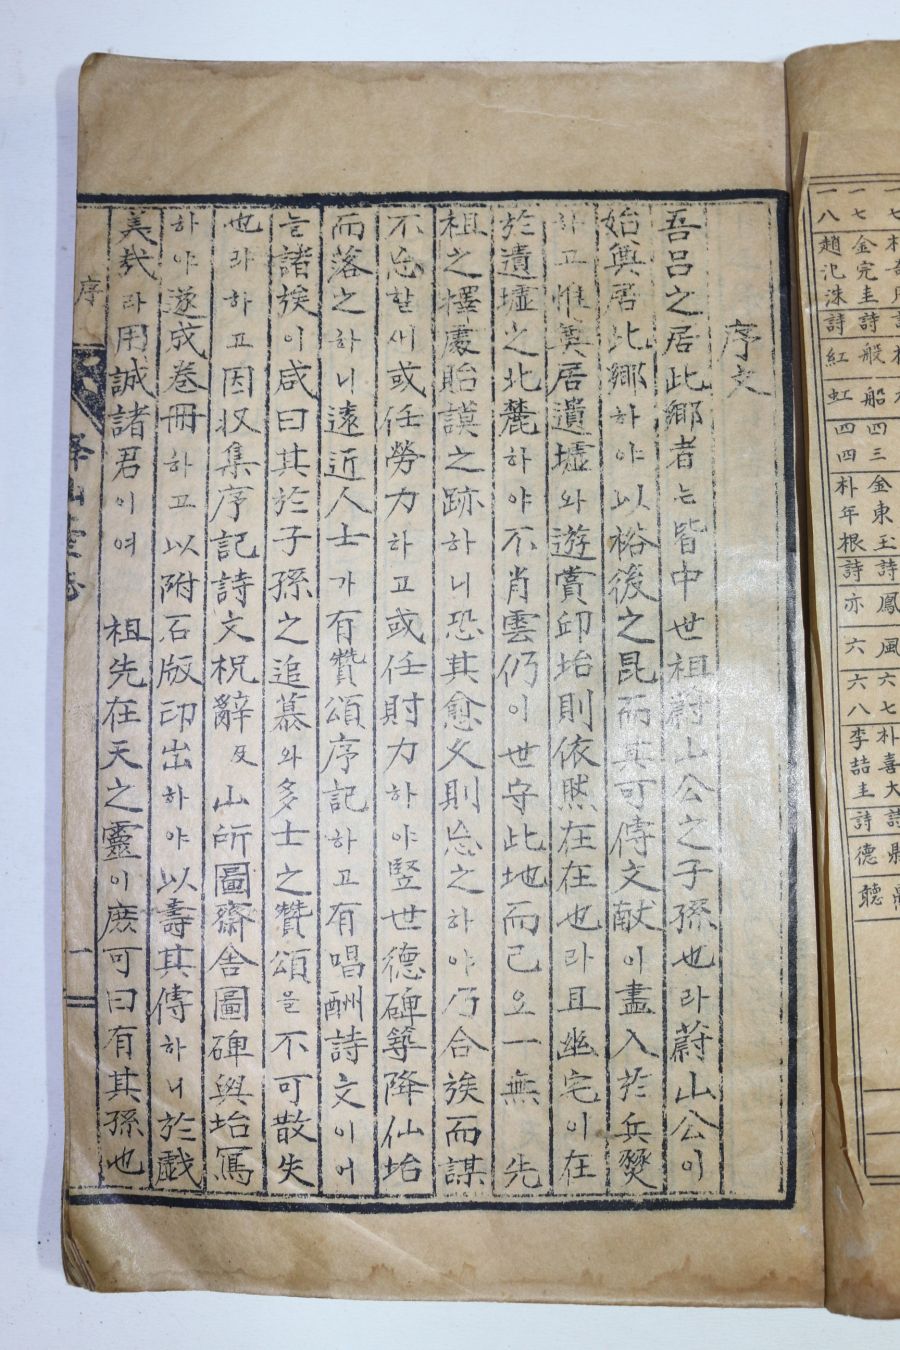 序文
吾呂之居此鄉者는皆中世祖蔚山公之子孫也라蔚山公이
始奠居此鄉하야以裕後之昆而其可傳文献이盡入於兵燹
하고惟奠居遺墟와遊賞邱坮則依然在在也라且幽宅이在
於遺墟之北麓하야不肖雲仍이世守此地而已오一無 先
祖之擇處貽謨之跡하니恐其愈久則忘之하야乃合族而謀
不忘할새或任勞力하고或任財力하야竪世德碑築降仙坮
而落之하니遠近人士가有贊頌序記하고有唱酬詩文이어
늘諸族이咸曰其於子孫之追慕와多士之贊頌을不可散失
也라하고因收集序記詩文祝辭及 山所圖齋舍圖碑與坮寫
하야遂成卷冊하고以附石版印出하야以壽其傳하니於戱
美哉라用誠諸君이여 祖先在天之靈이庶可曰有其孫也
序
一
一七
金完圭
詩
般船
四三
金東玉
詩
鳳風
六七
朴喜大
詩
一八
趙汜洙
詩
紅虹
四四
朴年根
詩
亦六
六八
李喆圭
詩
德聽